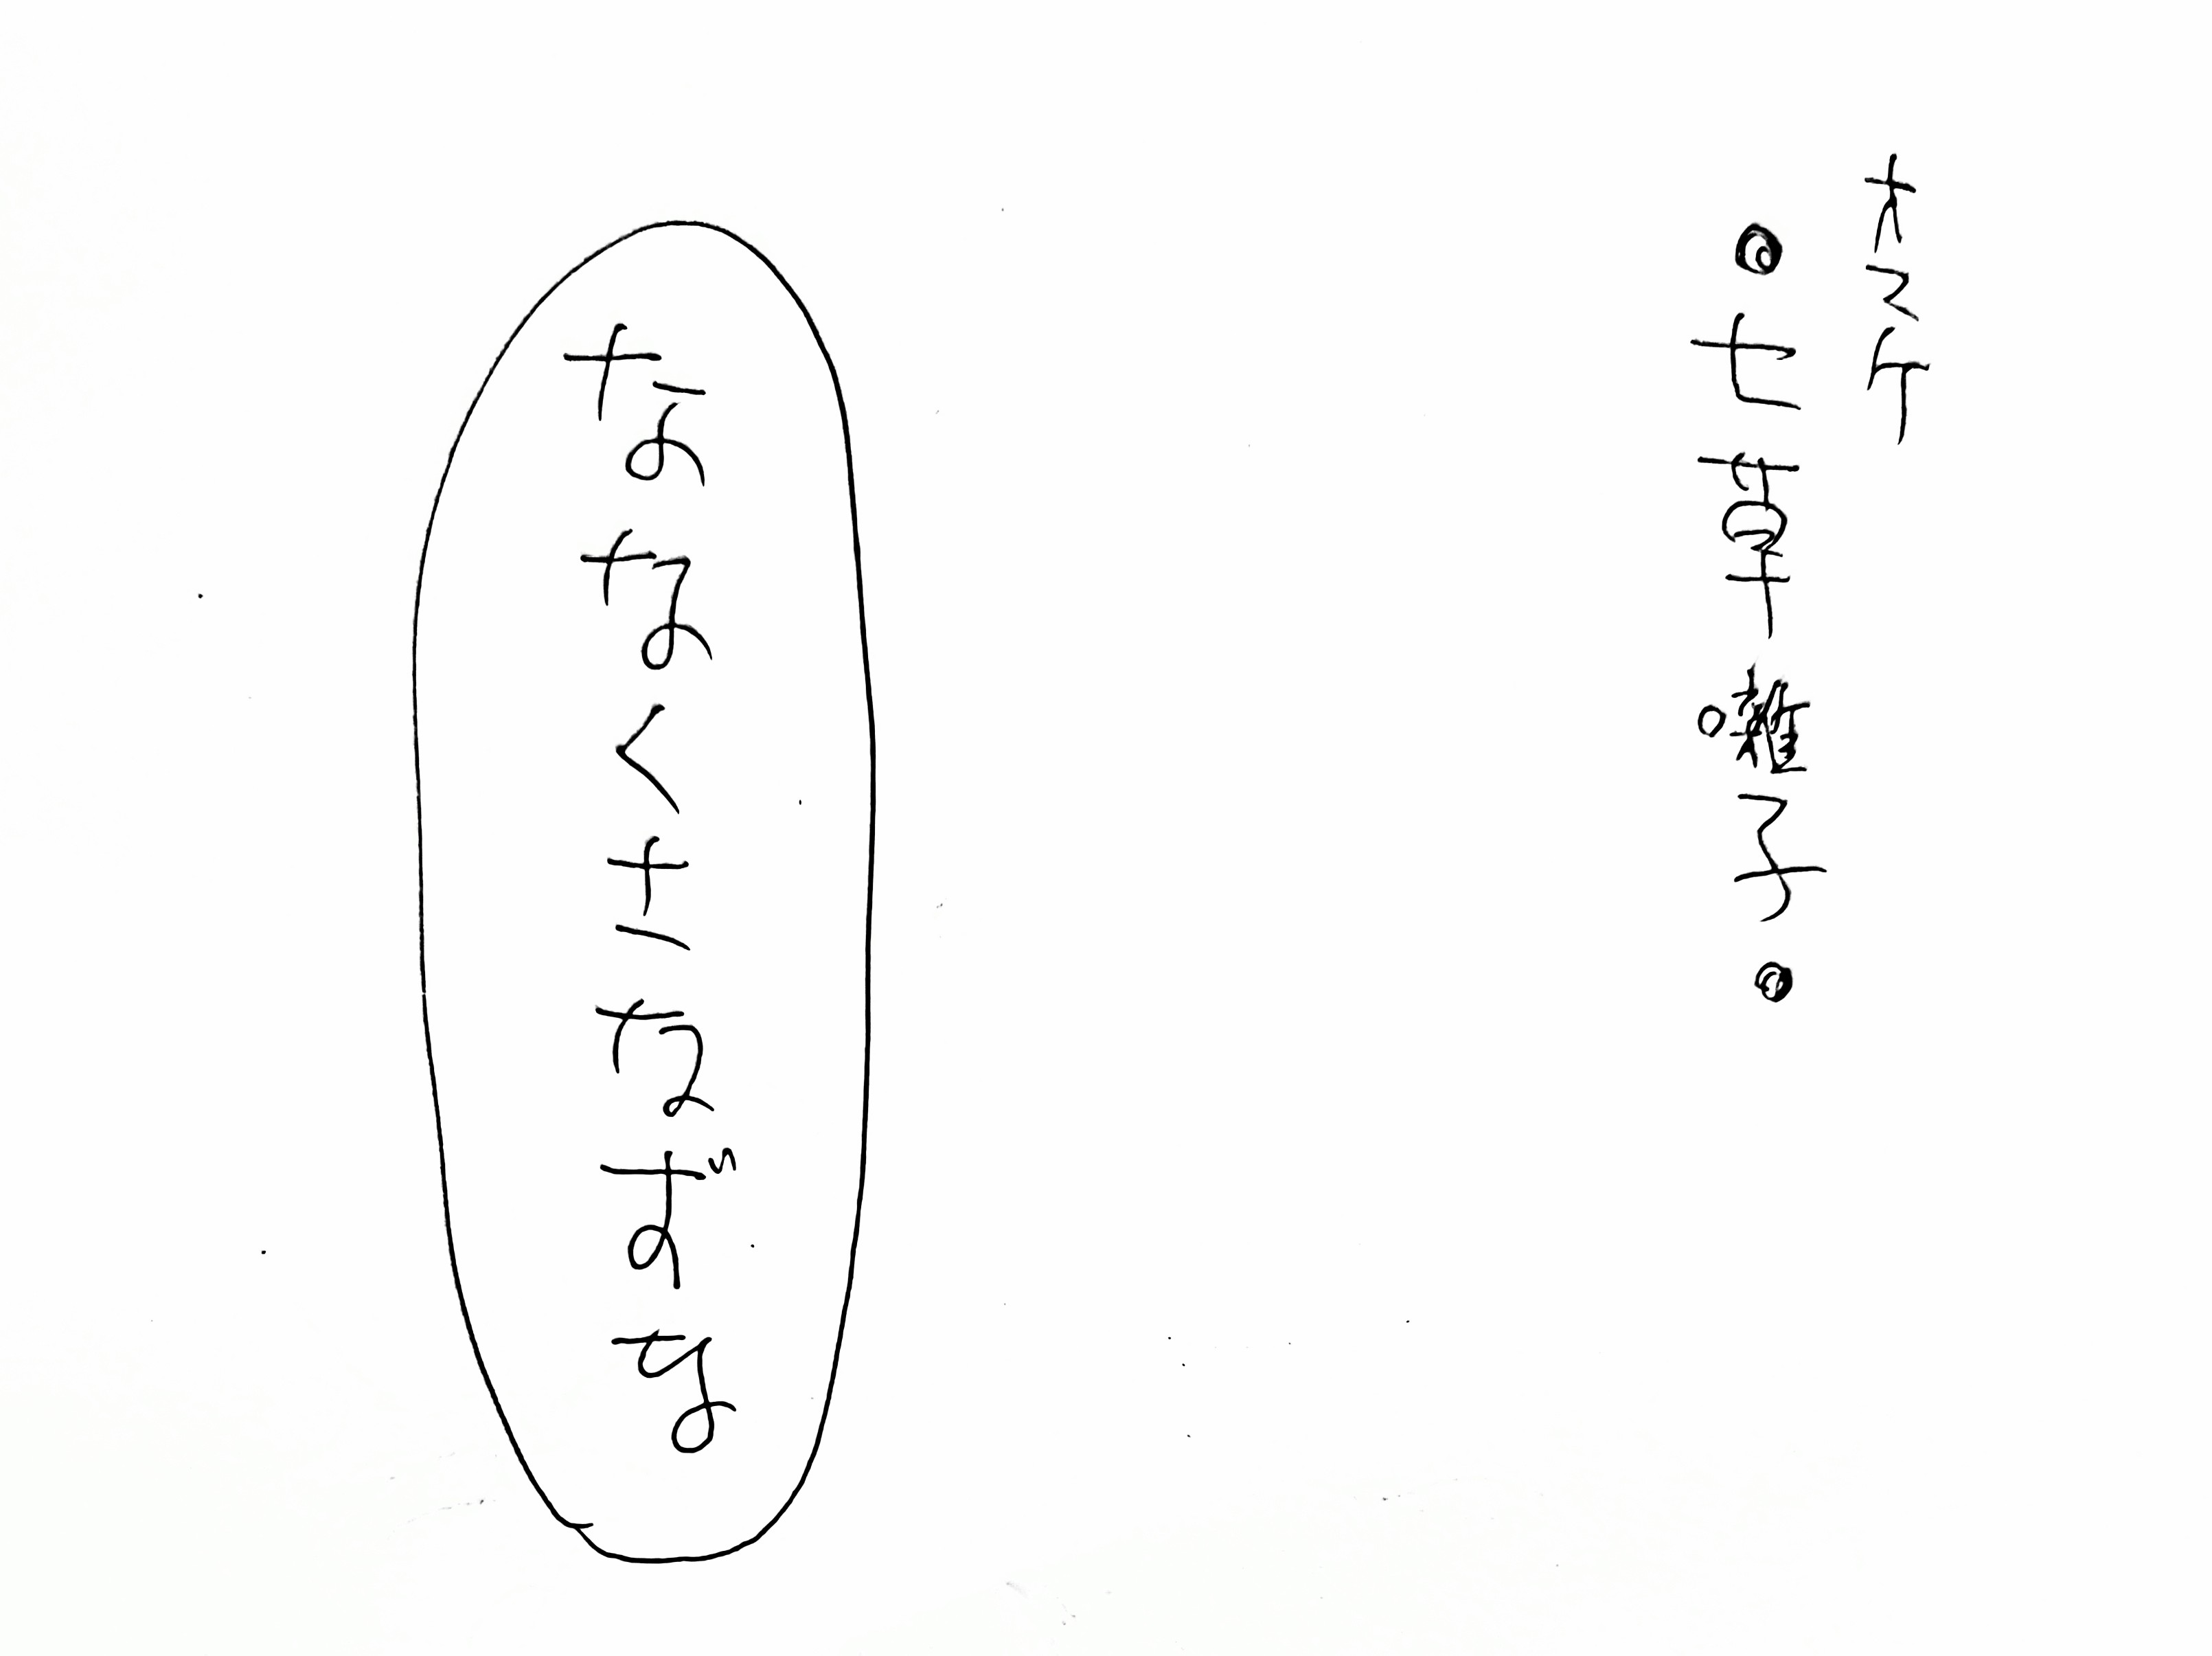 オマケ
◎七草囃子◎
ななくさなずな